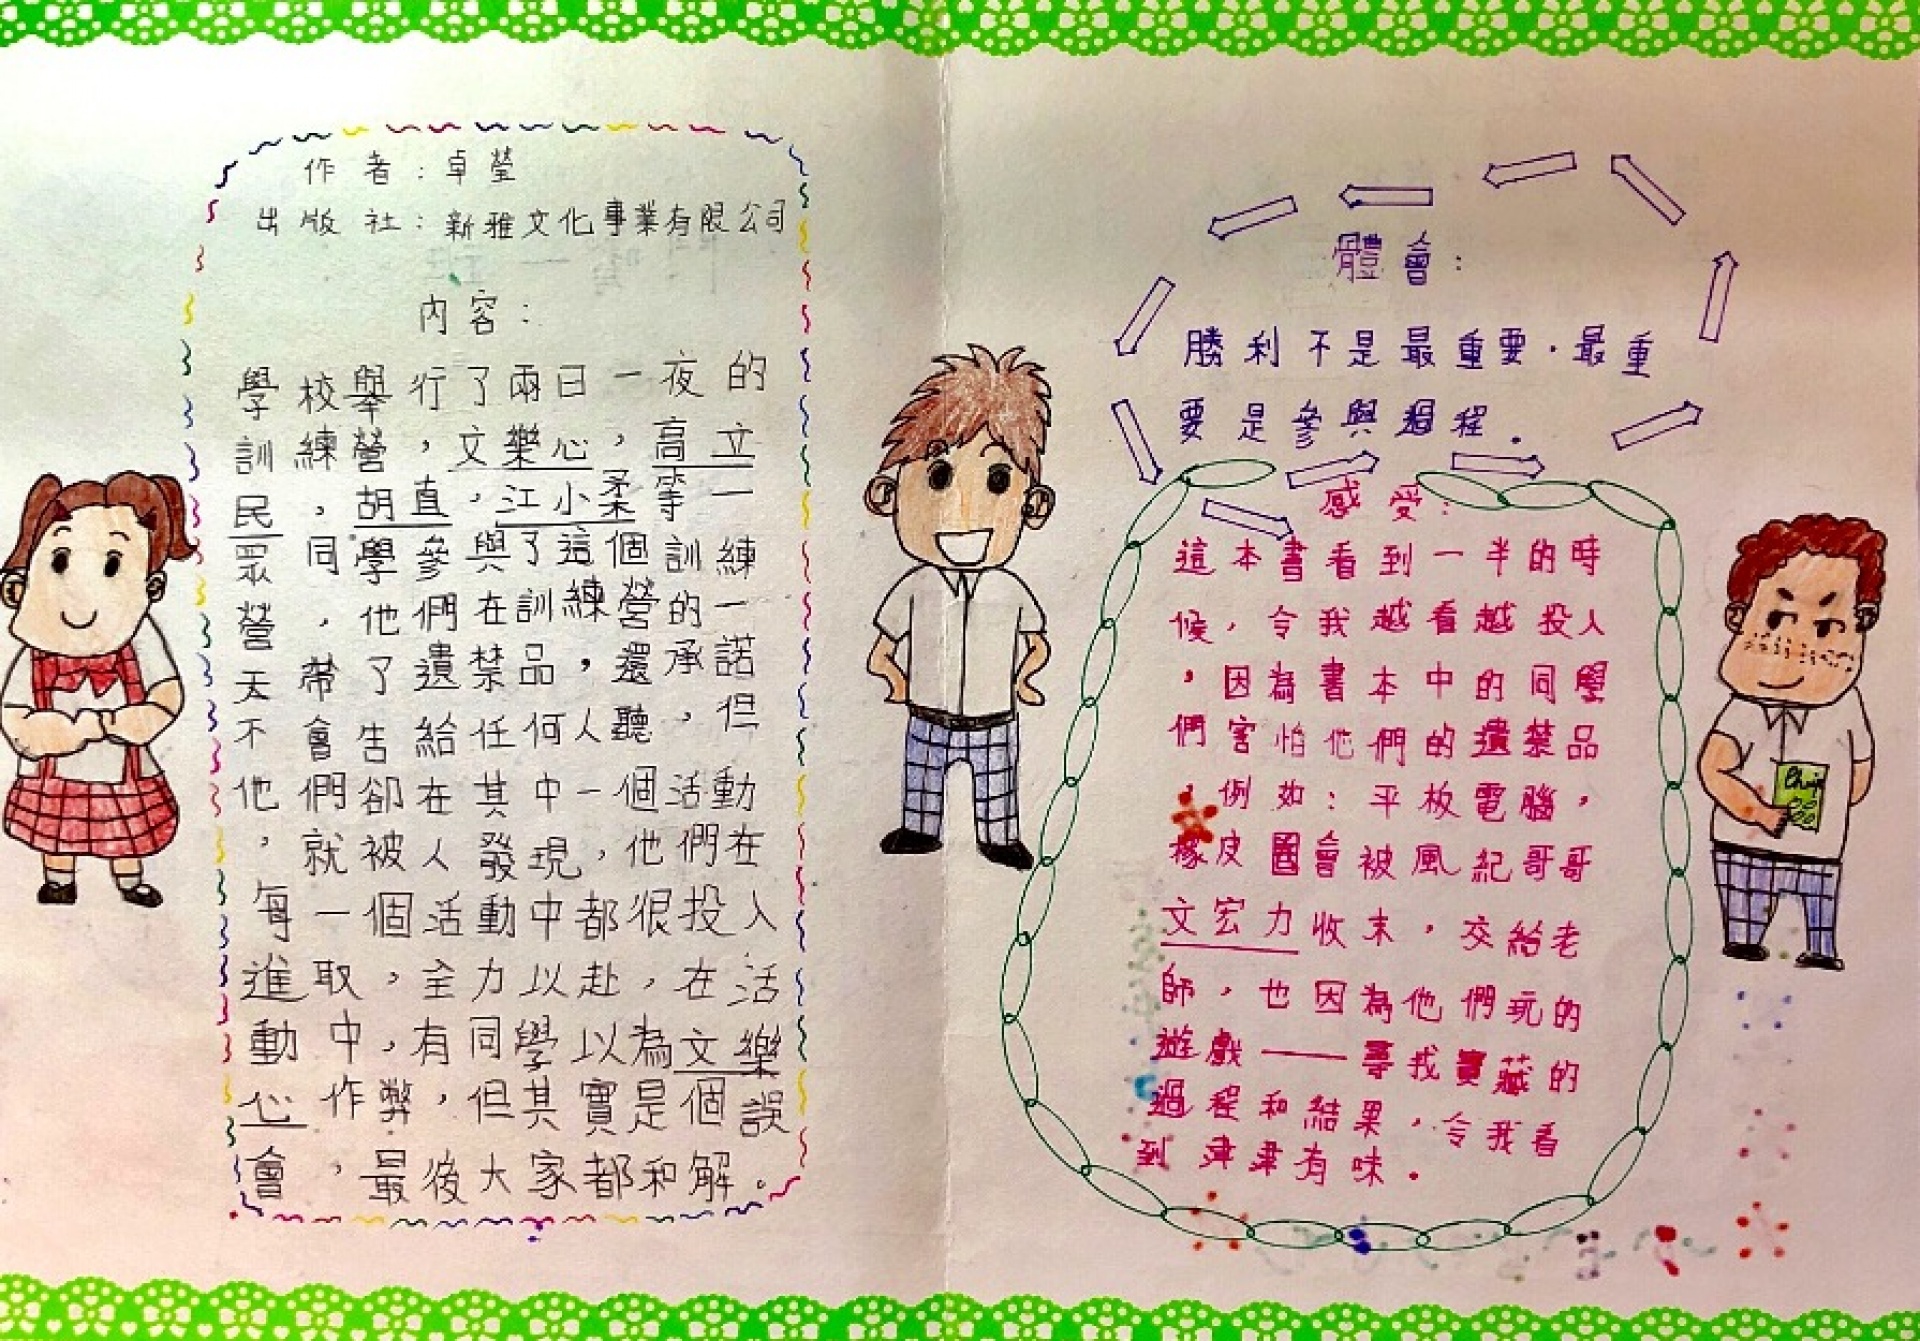 作者：卓瑩
出版社：新雅文化事業有限公司
內容：
學校舉行了兩日一夜的
訓練營，文樂心，高立
民，胡直，江小柔等一
眾同學參與了這個訓練
營，他們在訓練營的一
天帶了遺禁品，還承諾
不會告給任何人聽，但
他們卻在其中一個活動
，就被人發現，他們在
每一個活動中都很投入
進取，全力以赴，在活
動中，有同學以為文樂
心作弊，但其實是個誤
會，最後大家都和解。
體會：
勝利不是最重要．最重
要是參與過程．
感受：
這本書看到一半的時
候，令我越看越投入
，因為書本中的同學
們害怕他們的遺禁品
，例如：平板電腦，
橡皮圈會被風紀哥哥
文宏力收末，交給老
師，也因為他們玩的
遊戲——尋找寶藏的
過程和結果，令我看
到津津有味．
Chip